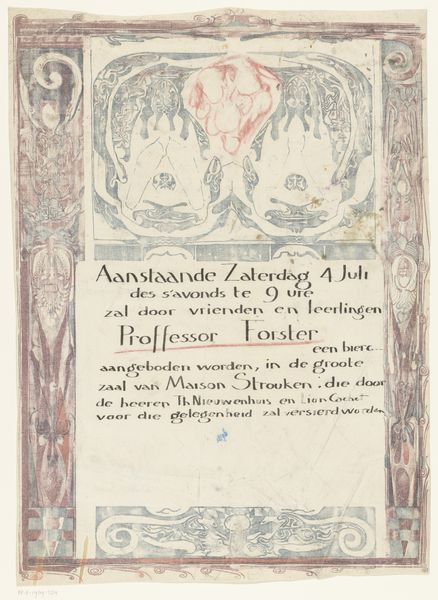 Aanstaande Zaterdag 4 Juli
des s'avonds te 9 ure
zal door vrienden en leerlingen
Proffessor Forster
een bier...
aangeboden worden, in de groote
zaal van Maison Strouken: die door
de heeren Th Nieuwenhuis en Lion Cachet
voor die gelegenheid zal versierd worden